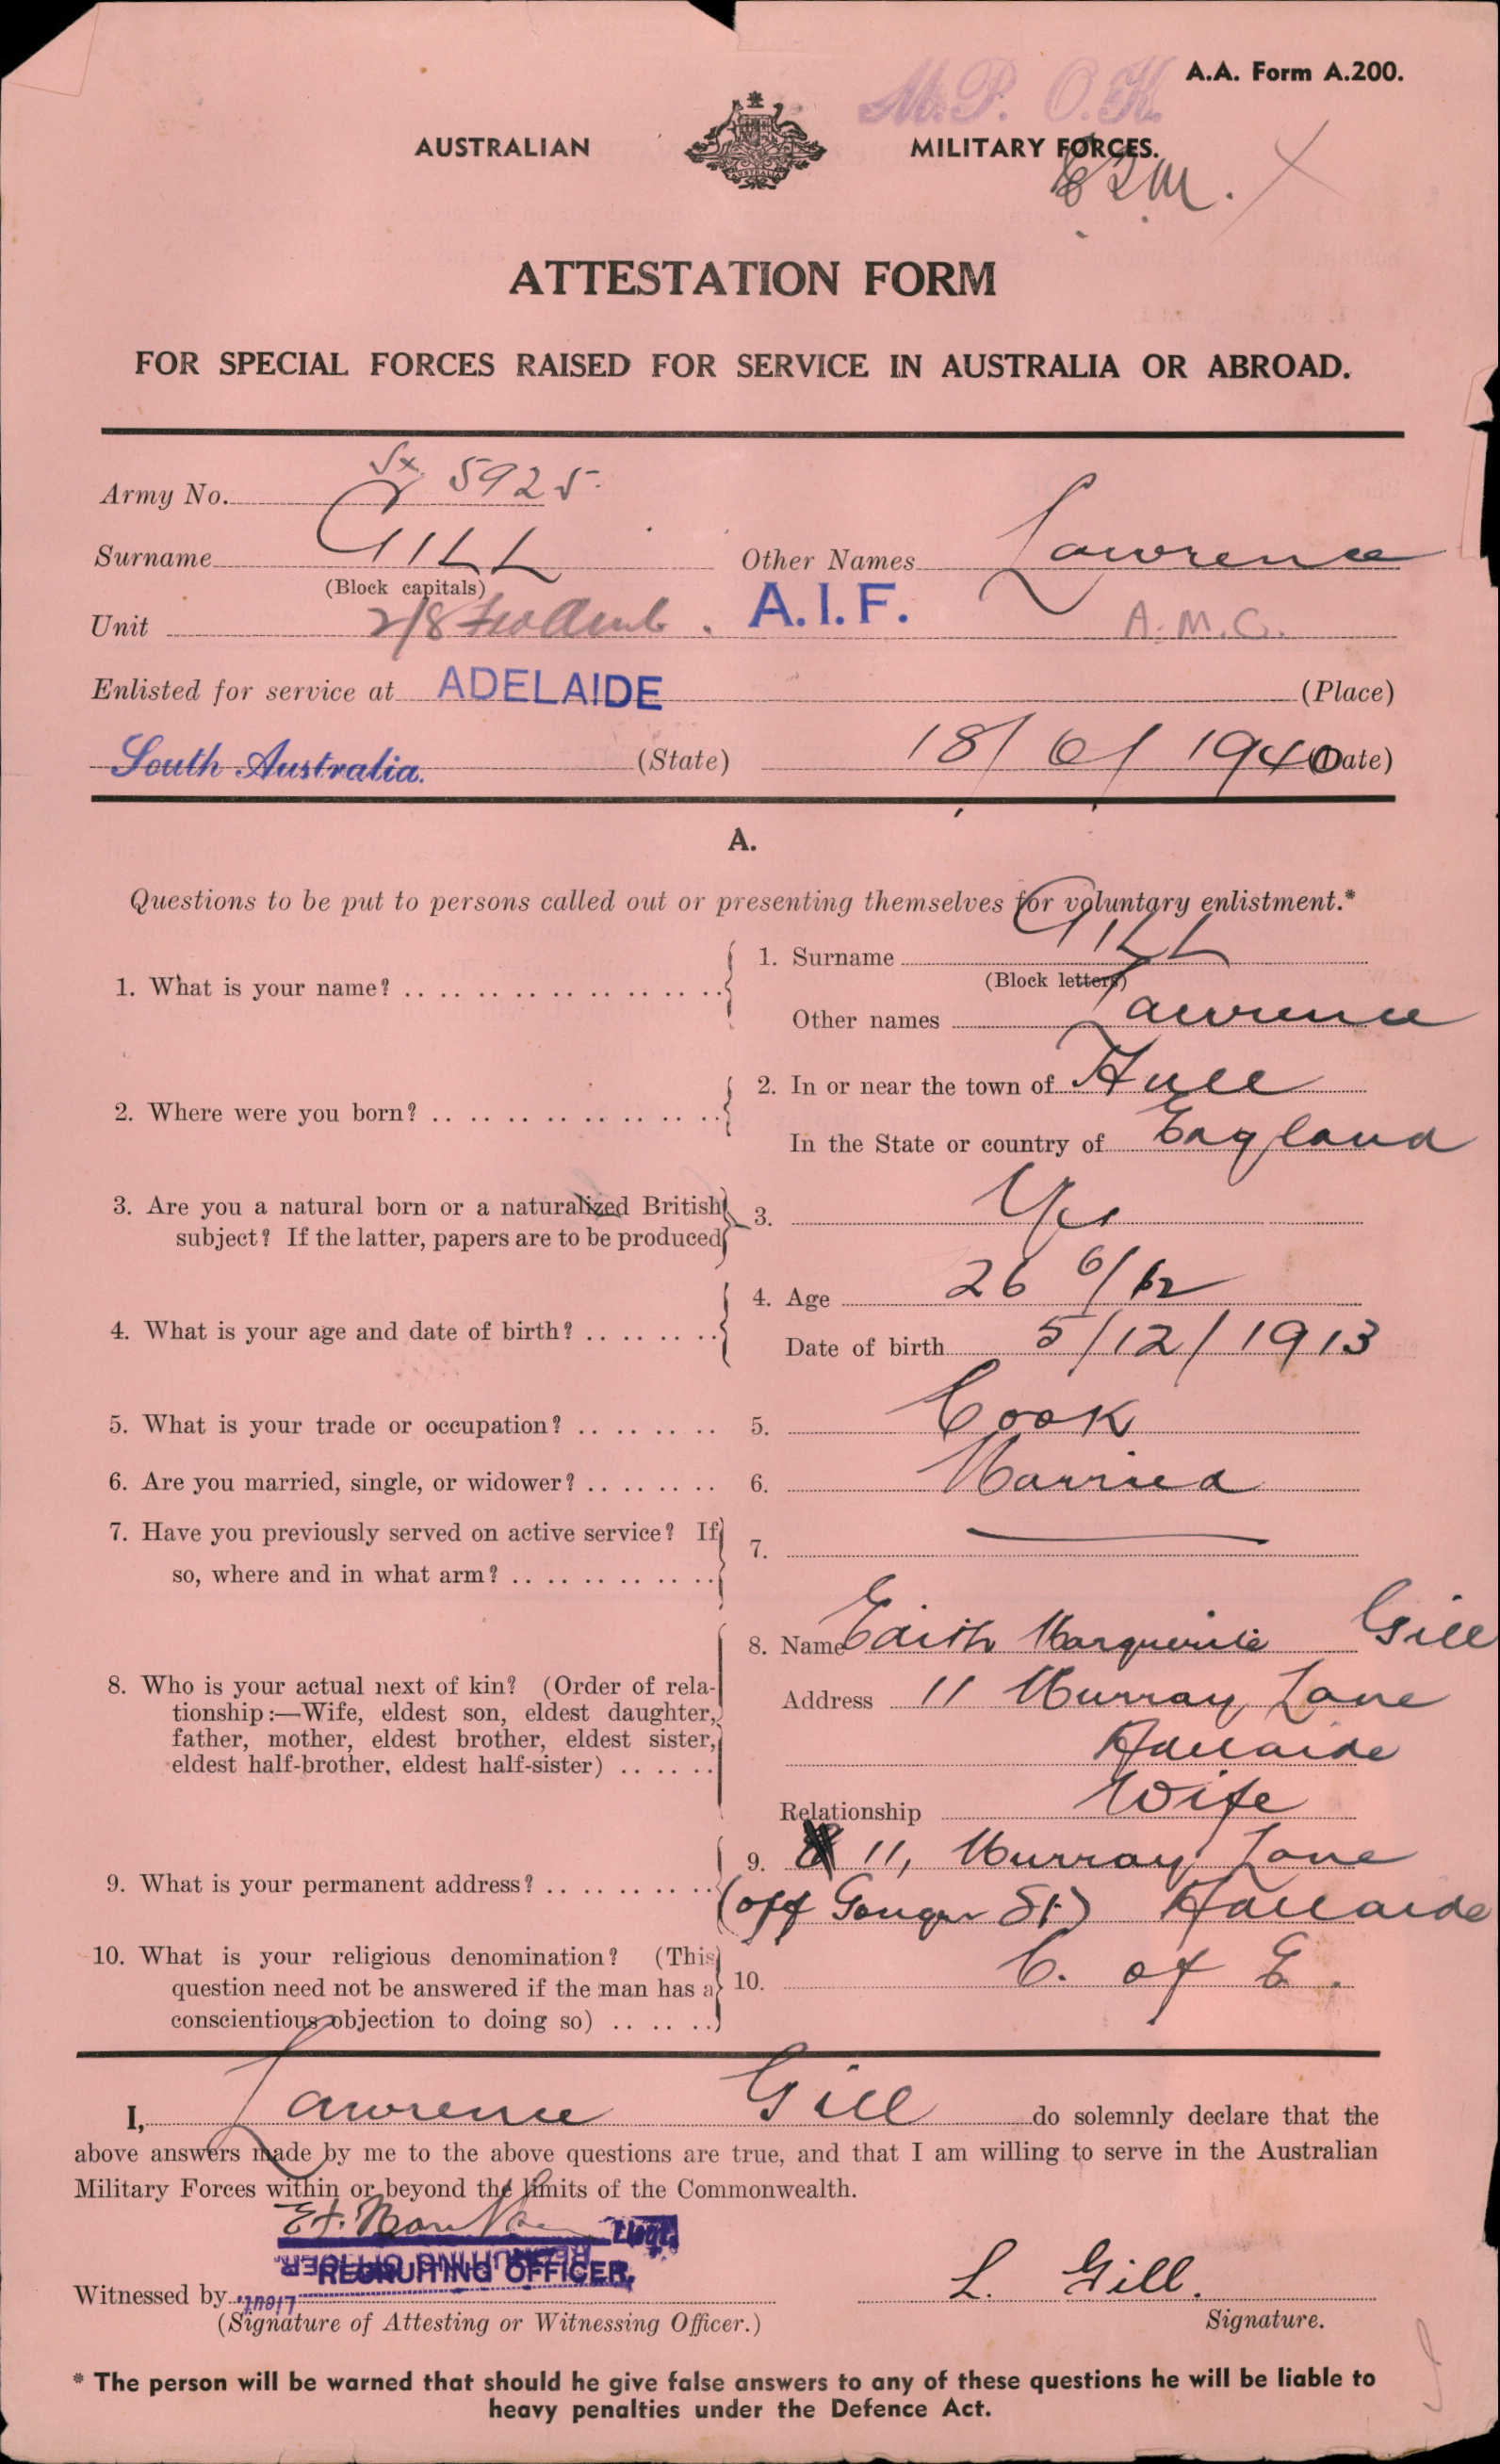 M.P. O.K.
A.A. Form A.200.
AUSTRALIAN MILITARY FORCES.
ATTESTATION FORM
FOR SPECIAL FORCES RAISED FOR SERVICE IN AUSTRALIA OR ABROAD.
Army No. SX 5925
Surname GILL Other Names Lawrence
(Block capitals)
Unit 2/8 Fld Amb. A.I.F. A.M.C.
Enlisted for service at ADELAIDE (Place)
South Australia. (State) 18/6/1940 (Date)
A.
Questions to be put to persons called out or presenting themselves for voluntary enlistment.*
1. What is your name? 1. Surname GILL
(Block letters)
Other names Lawrence
2. Where were you born? 2. In or near the town of Hull
In the State or country of England
3. Are you a natural born or a naturalized British subject? If the latter, papers are to be produced 3. Yes
4. What is your age and date of birth? 4. Age 26 6/12
Date of birth 5/12/1913
5. What is your trade or occupation? 5. Cook
6. Are you married, single, or widower? 6. Married
7. Have you previously served on active service? If so, where and in what arm? 7. —
8. Who is your actual next of kin? (Order of relationship:—Wife, eldest son, eldest daughter, father, mother, eldest brother, eldest sister, eldest half-brother, eldest half-sister)
8. Name Edith Marguerite Gill
Address 11 Murray Lane
Adelaide
Relationship Wife
9. What is your permanent address? 9. 11, Murray Lane
(off Gouger St) Adelaide
10. What is your religious denomination? (This question need not be answered if the man has a conscientious objection to doing so) 10. C. of E.
I, Lawrence Gill do solemnly declare that the
above answers made by me to the above questions are true, and that I am willing to serve in the Australian
Military Forces within or beyond the limits of the Commonwealth.
Lieut.
RECRUITING OFFICER.
Witnessed by L. Gill.
(Signature of Attesting or Witnessing Officer.) Signature.
* The person will be warned that should he give false answers to any of these questions he will be liable to
heavy penalties under the Defence Act.